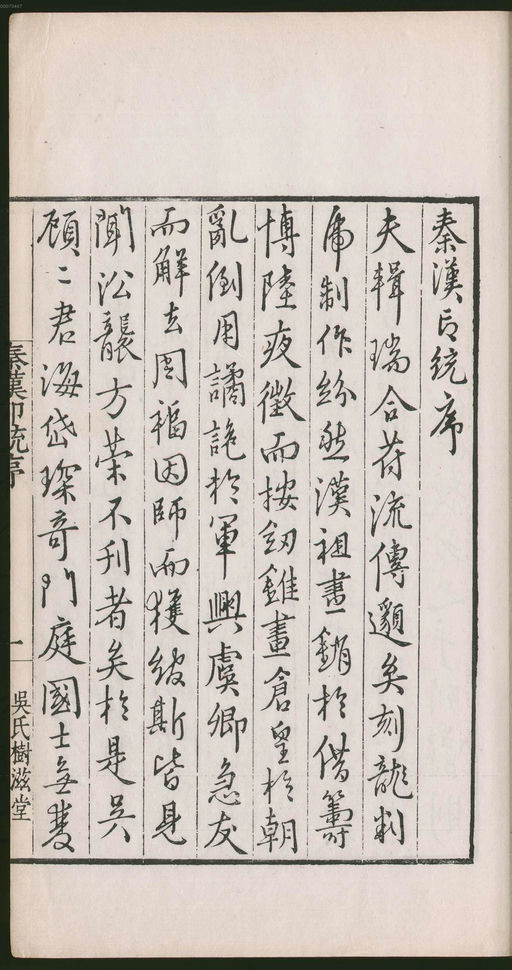 秦漢印統序
夫輯瑞合符流傳邈矣刻龍剖
虎制作紛然漢祖畫銷於借籌
博陸夜徵而按劍錐畫倉皇於朝
亂倒用譎詭於軍興虞卿急友
而解去周福因師而獲綬斯皆見
聞沿襲方策不刊者矣於是吳
顧二君海岱琛奇門庭國士無雙
秦漢印統序
一
吳氏樹滋堂
00073447